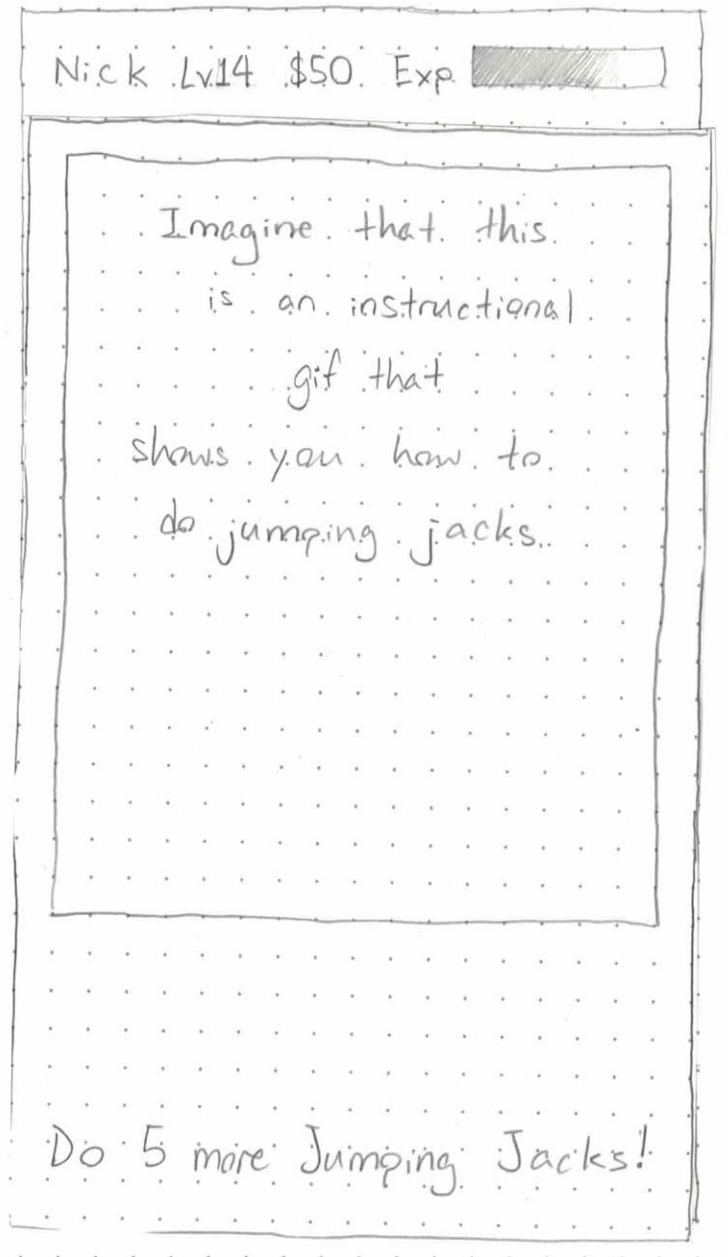 Nick Lv14 $50 Exp
Imagine that this
is an instructional
gif that
shows you how to
do jumping jacks.
Do 5 more Jumping Jacks!